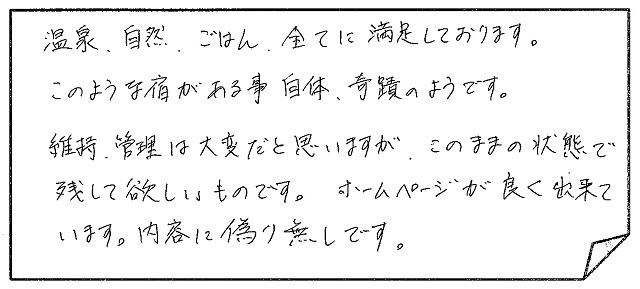 温泉、自然、ごはん、全てに満足しております。
このような宿がある事自体、奇蹟のようです。
維持、管理は大変だと思いますが、このままの状態で
残して欲しいものです。 ホームページが良く出来て
います。内容に偽り無しです。